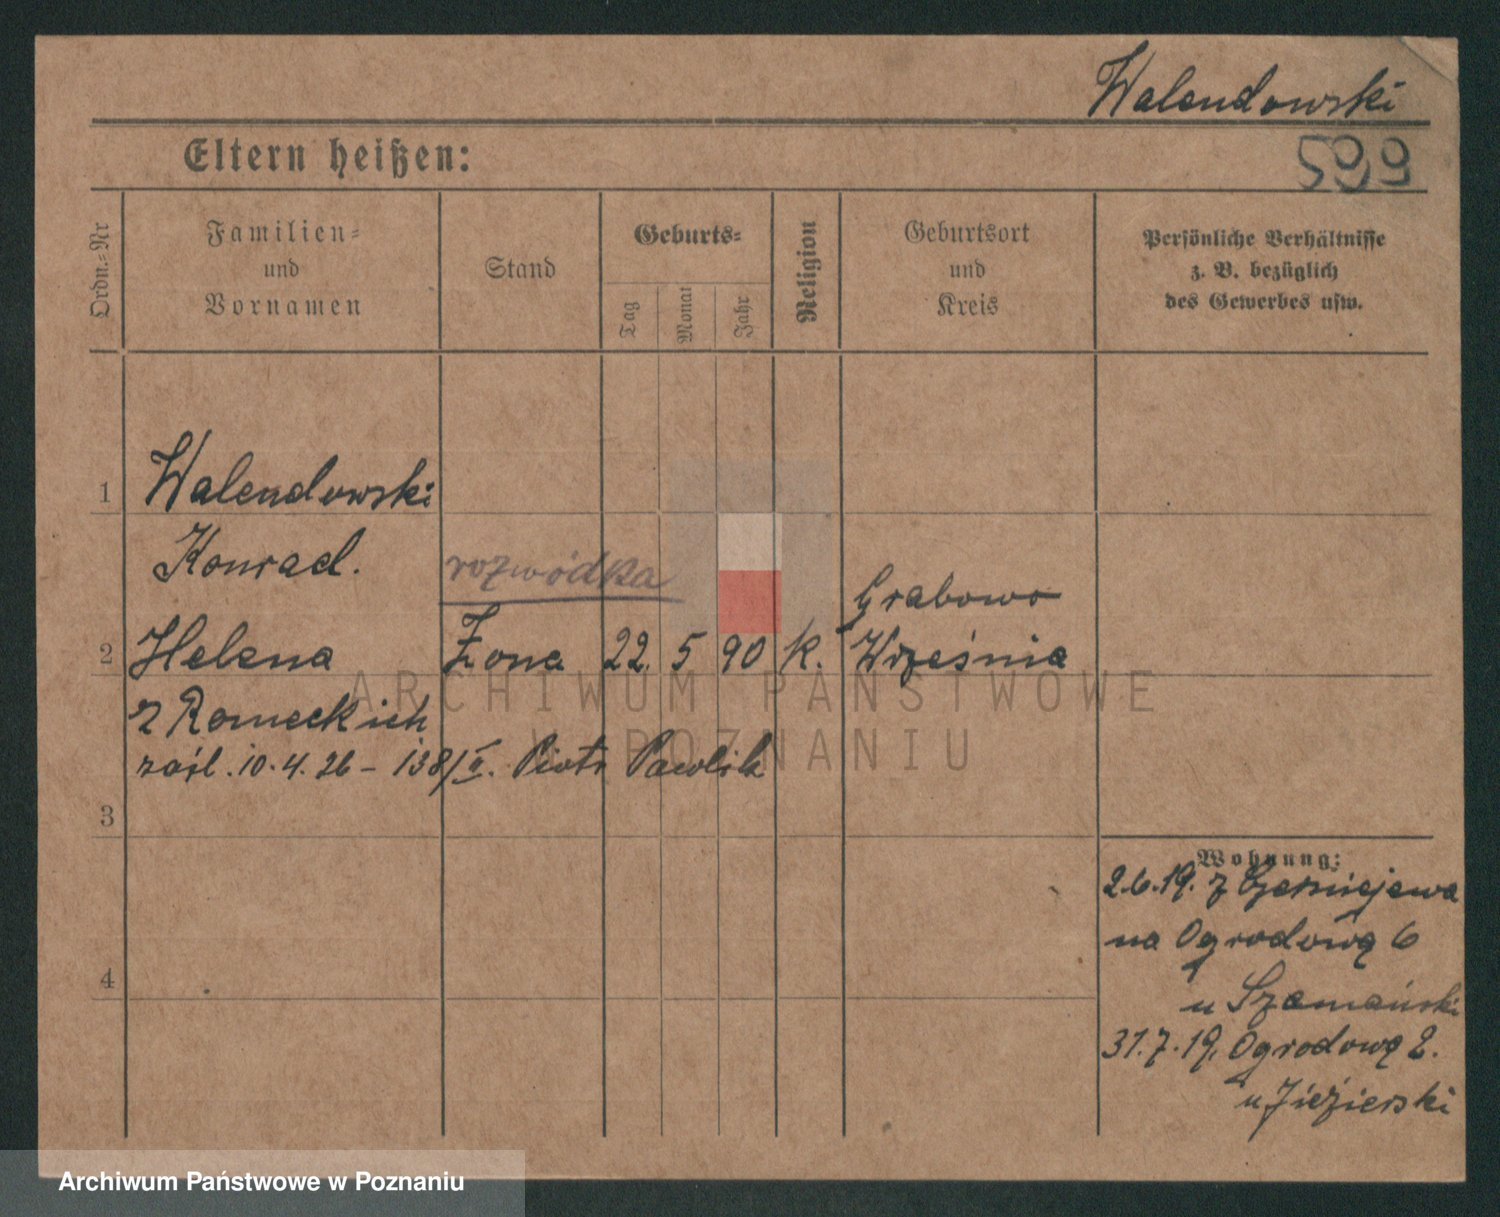 Walendowski
599
Eltern heißen:
Ordn.=Nr
Familien=
und
Vornamen
Stand
Geburts=
Tag
Monat
Jahr
Religion
Geburtsort
und
Kreis
Persönliche Verhältnisse
z. B. bezüglich
des Gewerbes usw.
1 Walendowski
Konrad.
rozwódka
Grabowo
2 Helena Żona 22. 5 90 k. Września
z Romeckich
zaśl. 10.4.26 – 138/II. Piotr Pawlik
3
Wohnung:
2.6.19. z Czerniejewa
na Ogrodową 6
4
u Szamański
31.7.19. Ogrodową 2.
u Jieżierski
ARCHIWUM PAŃSTWOWE
W POZNANIU
Archiwum Państwowe w Poznaniu